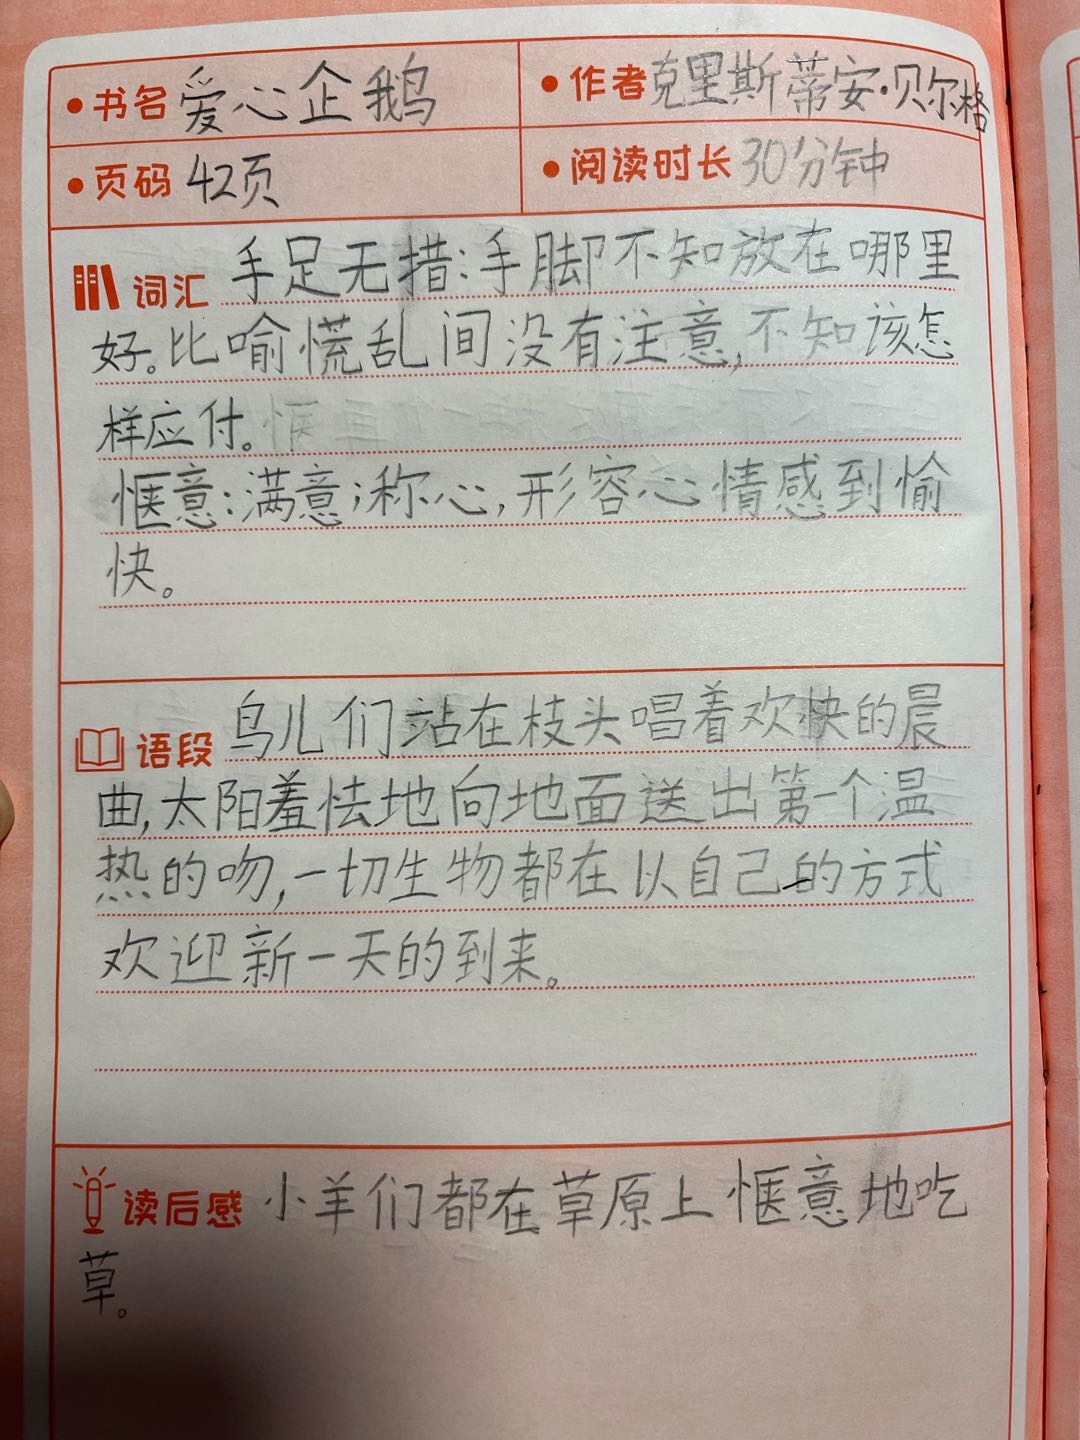 书名 爱心企鹅 作者 克里斯蒂安·贝尔格
页码 42页 阅读时长 30分钟
词汇 手足无措:手脚不知放在哪里
好。比喻慌乱间没有注意,不知该怎
样应付。
惬意:满意;称心,形容心情感到愉
快。
语段 鸟儿们站在枝头唱着欢快的晨
曲,太阳羞怯地向地面送出第一个温
热的吻,一切生物都在以自己的方式
欢迎新一天的到来。
读后感 小羊们都在草原上惬意地吃
草。